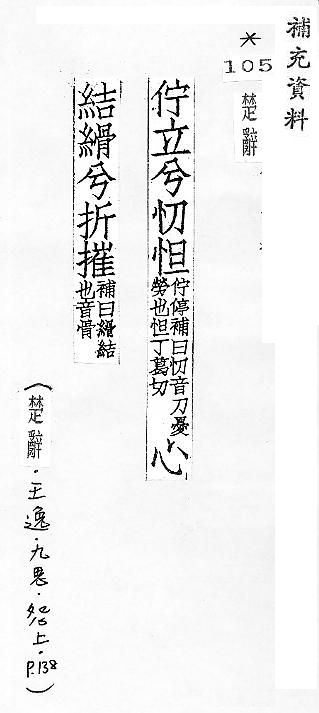 補充資料
*
105
楚辭
佇立兮忉怛佇停補曰忉音刀憂勞也怛丁葛切心
結縎兮折摧補曰縎結也音骨
(楚辭．王逸．九思．怨上．P.138)